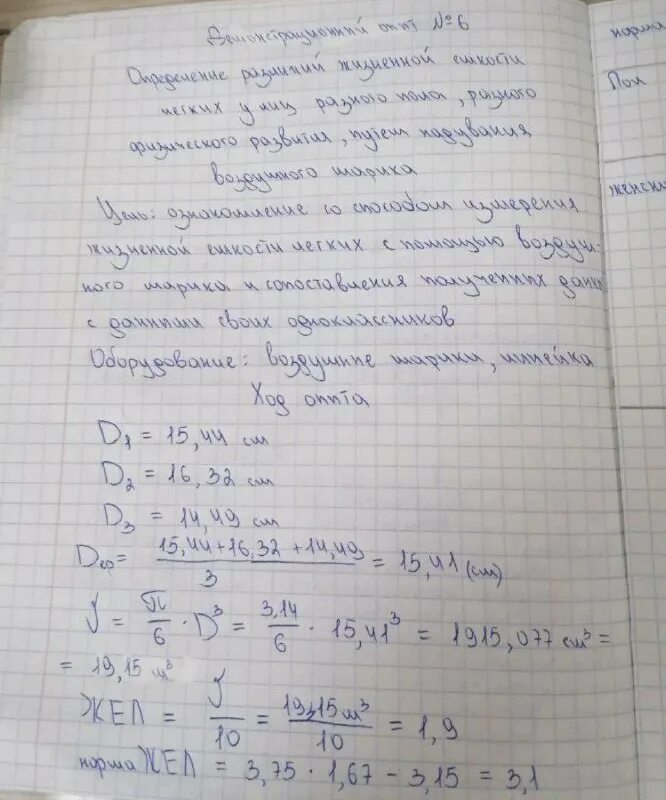 Демонстрационный опыт №6
норма
Определение различий жизненной емкости
Пол
легких у лиц разного пола, разного
физического развития, путем надувания
воздушного шарика
женски
Цель: ознакомление со способом измерения
жизненной емкости легких с помощью воздуш-
ного шарика и сопоставления полученных данн
с данными своих одноклассников
Оборудование: воздушные шарики, линейка
Ход опыта
D1 = 15,44 см
D2 = 16,32 см
D3 = 14,49 см
Dср = (15,44+16,32+14,49)/3 = 15,41 (см)
J = π/6 · D³ = 3,14/6 · 15,41³ = 1915,077 см³ =
= 19,15 м³
ЖЕЛ = J/10 = 19,15 м³/10 = 1,9
норма ЖЕЛ = 3,75 · 1,67 - 3,15 = 3,1